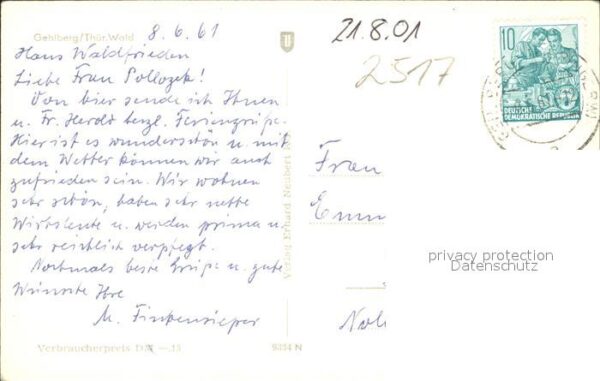 Gehlberg/Thür. Wald
8.6.61
Haus Waldfrieden
Liebe Frau Pollozek!
Von hier sende ich Ihnen
u. Fr. Herold herzl. Feriengrüße.
Hier ist es wunderschön u. mit
dem Wetter können wir auch
zufrieden sein. Wir wohnen
sehr schön, haben sehr nette
Wirtsleute u. werden prima u.
sehr reichlich verpflegt.
Nochmals beste Grüße u. gute
Wünsche Ihre
M. Finkensieper
Verbraucherpreis DM —.15
9354 N
Verlag Erhard Neubert
21.8.01
2517
10
DEUTSCHE
DEMOKRATISCHE REPUBLIK
Frau
Emm
privacy protection
Datenschutz